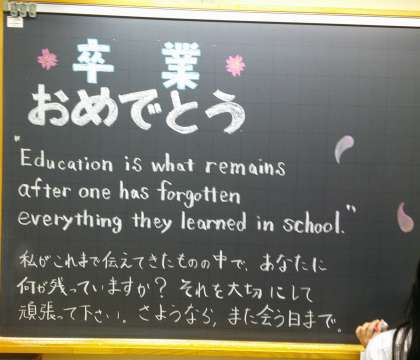 卒業
おめでとう
"Education is what remains
after one has forgotten
everything they learned in school."
私がこれまで伝えてきたものの中で、あなたに
何が残っていますか？それを大切にして
頑張って下さい。さようなら，また会う日まで。